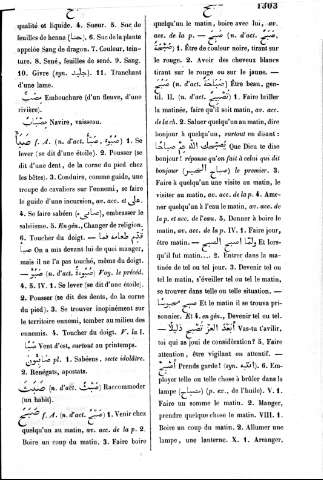 صبح
صبح
1303
qualité et liquide. 4. Sueur. 5. Suc de
feuilles de henna (حناء). 6. Suc de la plante
appelée Sang de dragon. 7. Couleur, tein-
ture. 8. Séné, feuilles de séné. 9. Sang.
10. Givre (syn. جليد). 11. Tranchant
d'une lame.
Embouchure (d'un fleuve, d'une
rivière).
Navire, vaisseau.
f. A. (n. d'act. صبأ, صبوء) 1. Se
lever (se dit d'une étoile). 2. Pousser (se
dit d'une dent, de la corne du pied chez
les bêtes). 3. Conduire, comme guide, une
troupe de cavaliers sur l'ennemi, se faire
le guide d'une incursion, av. acc. et على.
4. Se faire sabéen (صابىء), embrasser le
sabéisme. 5. En gén., Changer de religion.
6. Toucher du doigt.
On a mis devant lui de quoi manger,
mais il ne l'a pas touché, même du doigt.
(n. d'act. صبوءة) Voy. le précéd.
4. 5. IV. 1. Se lever (se dit d'une étoile).
2. Pousser (se dit des dents, de la corne
du pied). 3. Se trouver inopinément sur
le territoire ennemi, tomber au milieu des
ennemis. 4. Toucher du doigt. V. la f.
Vent d'est, surtout au printemps.
صابئون pl. 1. Sabéens, secte idolâtre.
2. Renégats, apostats.
(n. d'act. صبت) Raccommoder
(un habit).
صبح f. A. (n. d'act. صبح) 1. Venir chez
quelqu'un au matin, av. acc. de la p. 2.
Boire un coup du matin. 3. Faire boire
quelqu'un le matin, boire avec lui, av.
acc. de la p. — صبح (n. d'act. صبح,
صبحة) 1. Être de couleur noire, tirant sur
le rouge. 2. Avoir des cheveux blancs
tirant sur le rouge ou sur le jaune. —
صبح (n. d'act. صباحة) Être beau, gen-
til. II. (n. d'act. تصبيح) 1. Faire luire la
matinée, faire qu'il soit matin, av. acc.
de la ch. 2. Saluer quelqu'un au matin, dire
bonjour à quelqu'un, surtout en disant :
صبحك الله Que Dieu te dise
bonjour ! réponse qu'on fait à celui qui dit
bonjour (صباح الخير) le premier. 3.
Faire à quelqu'un une visite au matin, le
visiter au matin, av. acc. de la p. 4. Ame-
ner quelqu'un à l'eau le matin, av. acc. de
la p. et acc. de l'eau. 5. Donner à boire le
matin, av. acc. de la p. IV. 1. Faire jour,
être matin. — Et lors-
qu'il fut matin.... 2. Entrer dans la ma-
tinée de tel ou tel jour. 3. Devenir tel ou
tel le matin, s'éveiller et devenir tel ou tel,
se trouver dans telle ou telle situation. —
Et le matin il se trouva pri-
sonnier. Et 4. en gén., Devenir tel ou tel.
Vas-ta t'avilir,
toi qui as joui de considération ? 5. Faire
attention, être vigilant ou attentif. —
أصبح Prends garde ! (syn. انتبه). 6. Em-
ployer telle ou telle chose à brûler dans la
lampe (مصباح) (p. ex., de l'huile). V. 1.
Faire un somme le matin. 2. Manger,
prendre quelque chose le matin. VIII. 1.
Boire un coup du matin. 2. Allumer une
lampe, une lanterne. X. 1. Arranger,